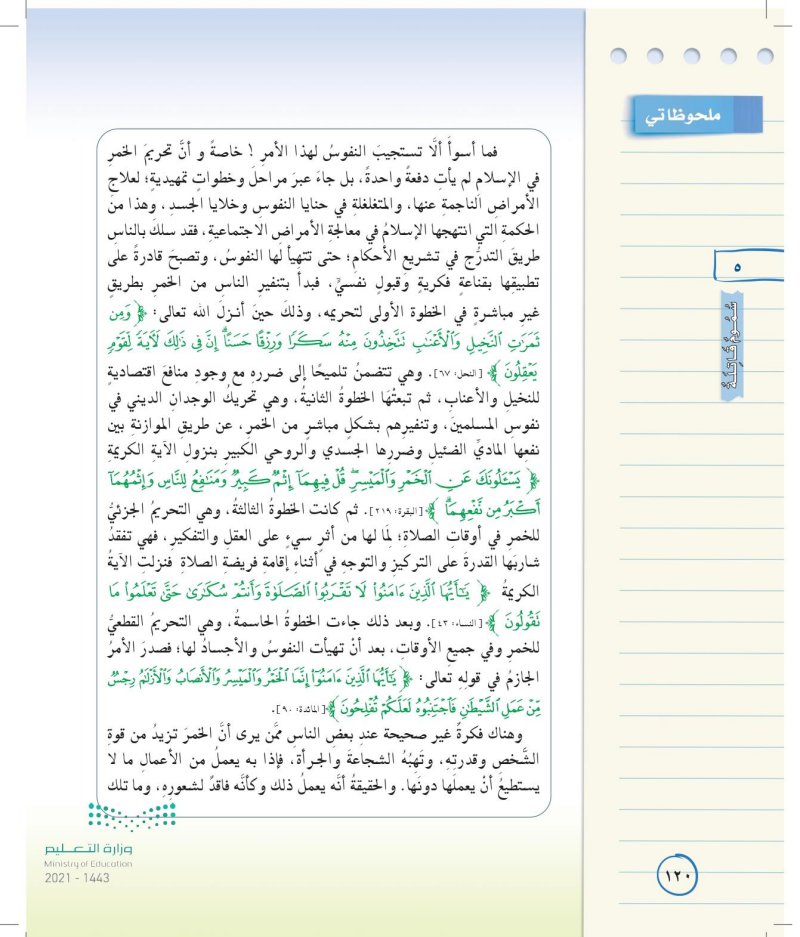 ملحوظاتي
٥
سُمُومٌ قَاتِلَةٌ
فما أسوأَ ألَّا تستجيبَ النفوسُ لهذا الأمرِ ! خاصةً و أنَّ تحريمَ الخمرِ
في الإسلامِ لم يأتِ دفعةً واحدةً، بل جاءَ عبرَ مراحلَ وخطواتٍ تمهيديةٍ؛ لعلاجِ
الأمراضِ الناجمةِ عنها، والمتغلغلةِ في حنايا النفوسِ وخلايا الجسدِ، وهذا منَ
الحكمةِ التي انتهجها الإسلامُ في معالجةِ الأمراضِ الاجتماعيةِ، فقد سلكَ بالناسِ
طريقَ التدرُّجِ في تشريعِ الأحكامِ؛ حتى تتهيأَ لها النفوسُ، وتصبحَ قادرةً على
تطبيقها بقناعةٍ فكريةٍ وقبولٍ نفسيٍّ، فبدأَ بتنفيرِ الناسِ من الخمرِ بطريقٍ
غيرِ مباشرةٍ في الخطوةِ الأولى لتحريمه، وذلكَ حينَ أنـزلَ الله تعالى: ﴿ وَمِن
ثَمَرَٰتِ ٱلنَّخِيلِ وَٱلْأَعْنَٰبِ تَتَّخِذُونَ مِنْهُ سَكَرًا وَرِزْقًا حَسَنًا ۗ إِنَّ فِى ذَٰلِكَ لَءَايَةً لِّقَوْمٍ
يَعْقِلُونَ ﴾ [النحل: ٦٧]. وهي تتضمنُ تلميحًا إلى ضررِهِ مع وجودِ منافعَ اقتصاديةٍ
للنخيلِ والأعنابِ، ثم تبعتْها الخطوةُ الثانيةُ، وهي تحريكُ الوجدانِ الديني في
نفوسِ المسلمينَ، وتنفيرهم بشكلٍ مباشرٍ من الخمرِ، عن طريقِ الموازنةِ بين
نفعها الماديِّ الضئيلِ وضررِها الجسدي والروحي الكبيرِ بنزولِ الآيةِ الكريمةِ
﴿ يَسْـَٔلُونَكَ عَنِ ٱلْخَمْرِ وَٱلْمَيْسِرِ ۖ قُلْ فِيهِمَآ إِثْمٌ كَبِيرٌ وَمَنَٰفِعُ لِلنَّاسِ وَإِثْمُهُمَآ
أَكْبَرُ مِن نَّفْعِهِمَا ۗ ﴾ [البقرة: ٢١٩]. ثم كانت الخطوةُ الثالثةُ، وهي التحريمُ الجزئيُّ
للخمرِ في أوقاتِ الصلاةِ؛ لِمَا لها من أثرٍ سيءٍ على العقلِ والتفكيرِ، فهي تفقدُ
شاربَها القدرةَ على التركيزِ والتوجهِ في أثناءِ إقامةِ فريضةِ الصلاةِ فنزلتِ الآيةُ
الكريمةُ ﴿ يَٰٓأَيُّهَا ٱلَّذِينَ ءَامَنُوا۟ لَا تَقْرَبُوا۟ ٱلصَّلَوٰةَ وَأَنتُمْ سُكَٰرَىٰ حَتَّىٰ تَعْلَمُوا۟ مَا
تَقُولُونَ ﴾ [النساء: ٤٣]. وبعد ذلك جاءت الخطوةُ الحاسمةُ، وهي التحريمُ القطعيُّ
للخمرِ وفي جميعِ الأوقاتِ، بعد أنْ تهيأت النفوسُ والأجسادُ لها؛ فصدرَ الأمرُ
الجازمُ في قولِهِ تعالى: ﴿ يَٰٓأَيُّهَا ٱلَّذِينَ ءَامَنُوٓا۟ إِنَّمَا ٱلْخَمْرُ وَٱلْمَيْسِرُ وَٱلْأَنصَابُ وَٱلْأَزْلَٰمُ رِجْسٌ
مِّنْ عَمَلِ ٱلشَّيْطَٰنِ فَٱجْتَنِبُوهُ لَعَلَّكُمْ تُفْلِحُونَ ﴾ [المائدة: ٩٠].
وهناك فكرةٌ غير صحيحة عندِ بعضِ الناسِ ممَّن يرى أنَّ الخمرَ تزيدُ من قوةِ
الشَّخصِ وقدرتِهِ، وتَهبُهُ الشجاعةَ والجـرأة، فإذا به يعملُ من الأعمالِ ما لا
يستطيعُ أنْ يعملَها دونَها. والحقيقةُ أنَّه يعملُ ذلك وكأنَّه فاقدٌ لشعورِهِ، وما تلك
وزارة التعـلـيم
Ministry of Education
2021 - 1443
١٢٠